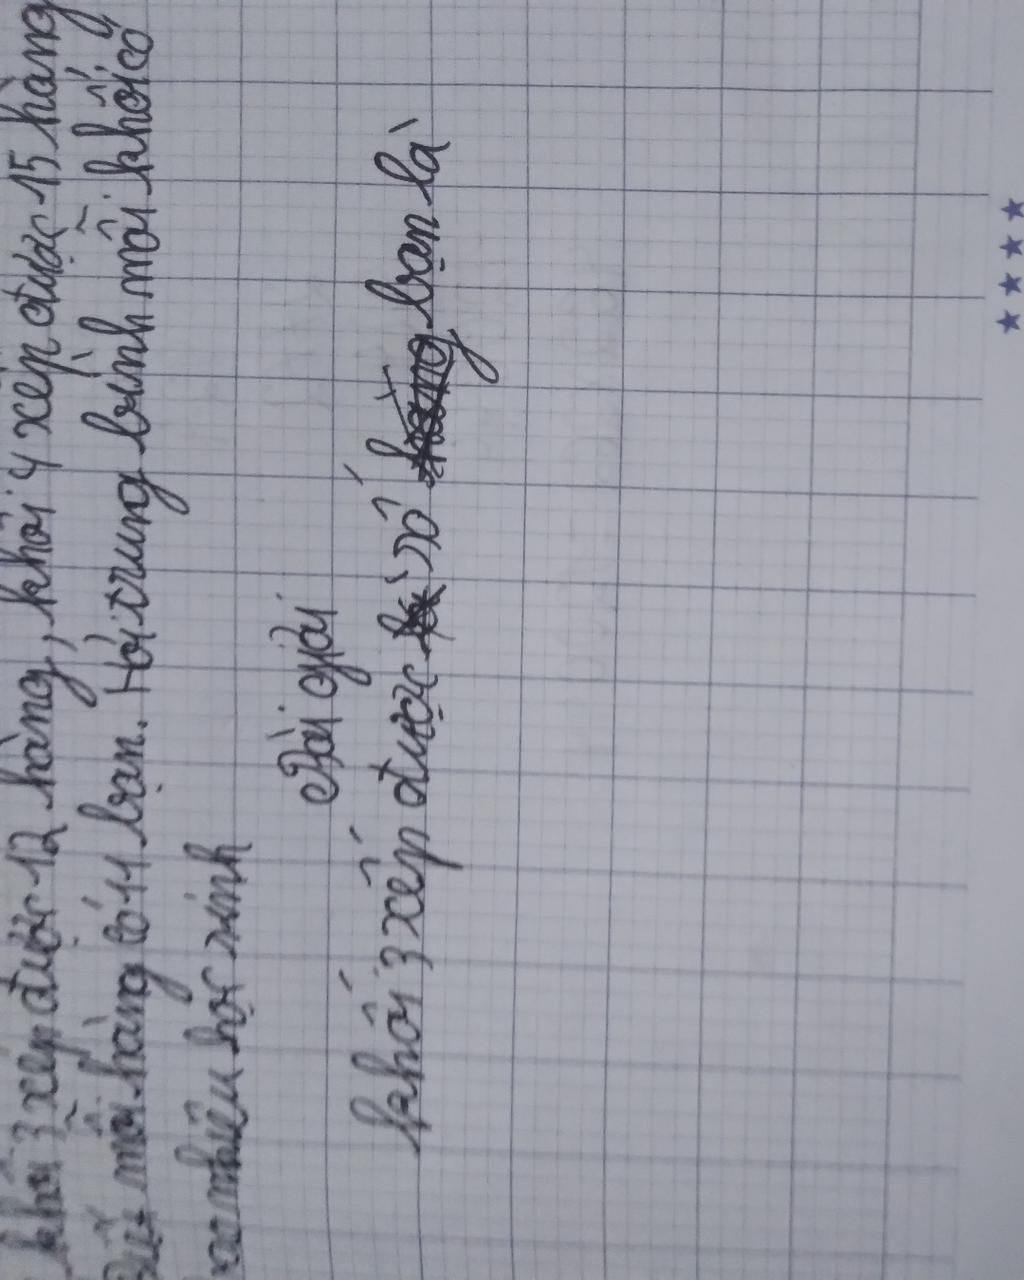 khối 3 xếp được 12 hàng, khối 4 xếp được 15 hàng
Biết mỗi hàng có 11 bạn. Hỏi trung bình mỗi khối có
bao nhiêu học sinh
Bài giải
khối 3 xếp được số bạn là